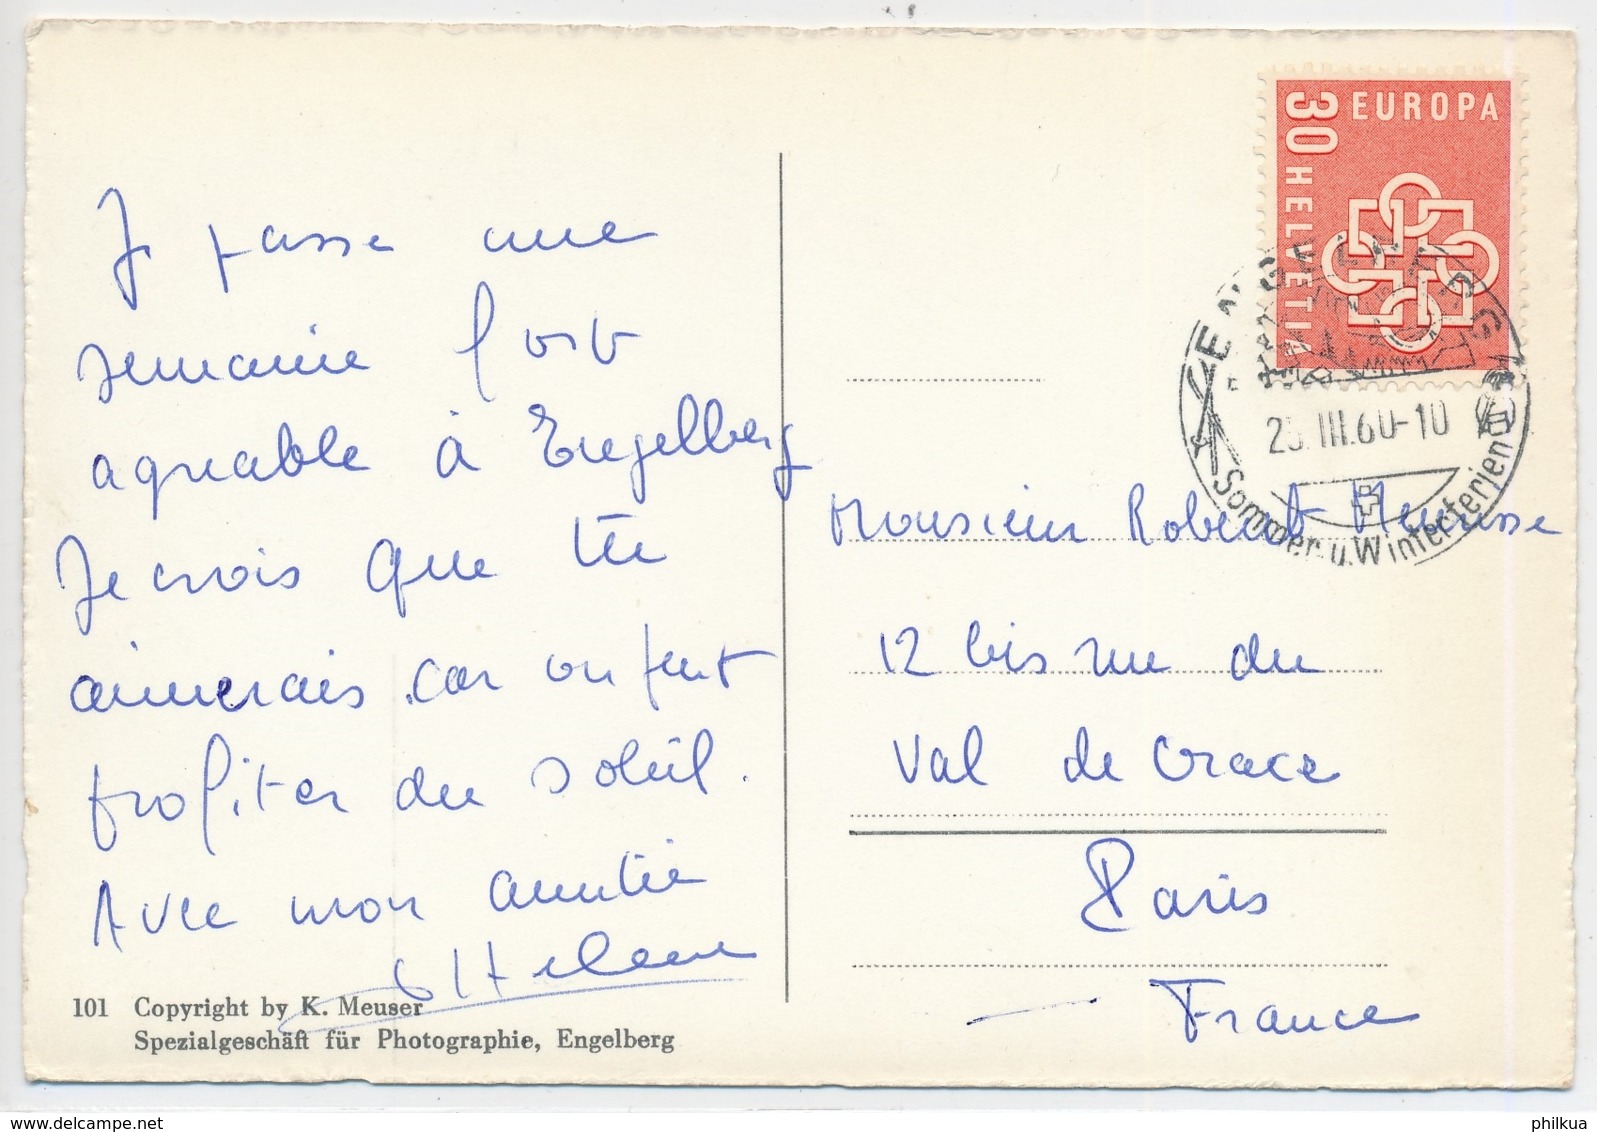 Je passe une
semaine fort
agréable à Engelberg
Je crois que tu
aimerais car on peut
profiter du soleil.
Avec mon amitié
101 Copyright by K. Meuser
Spezialgeschäft für Photographie, Engelberg
EUROPA
30 HELVETIA
ENGELBERG
III.60-10
Sommer- u. Winterferien
Monsieur Robert
12 bis rue du
Val de Grace
Paris
France
philkua